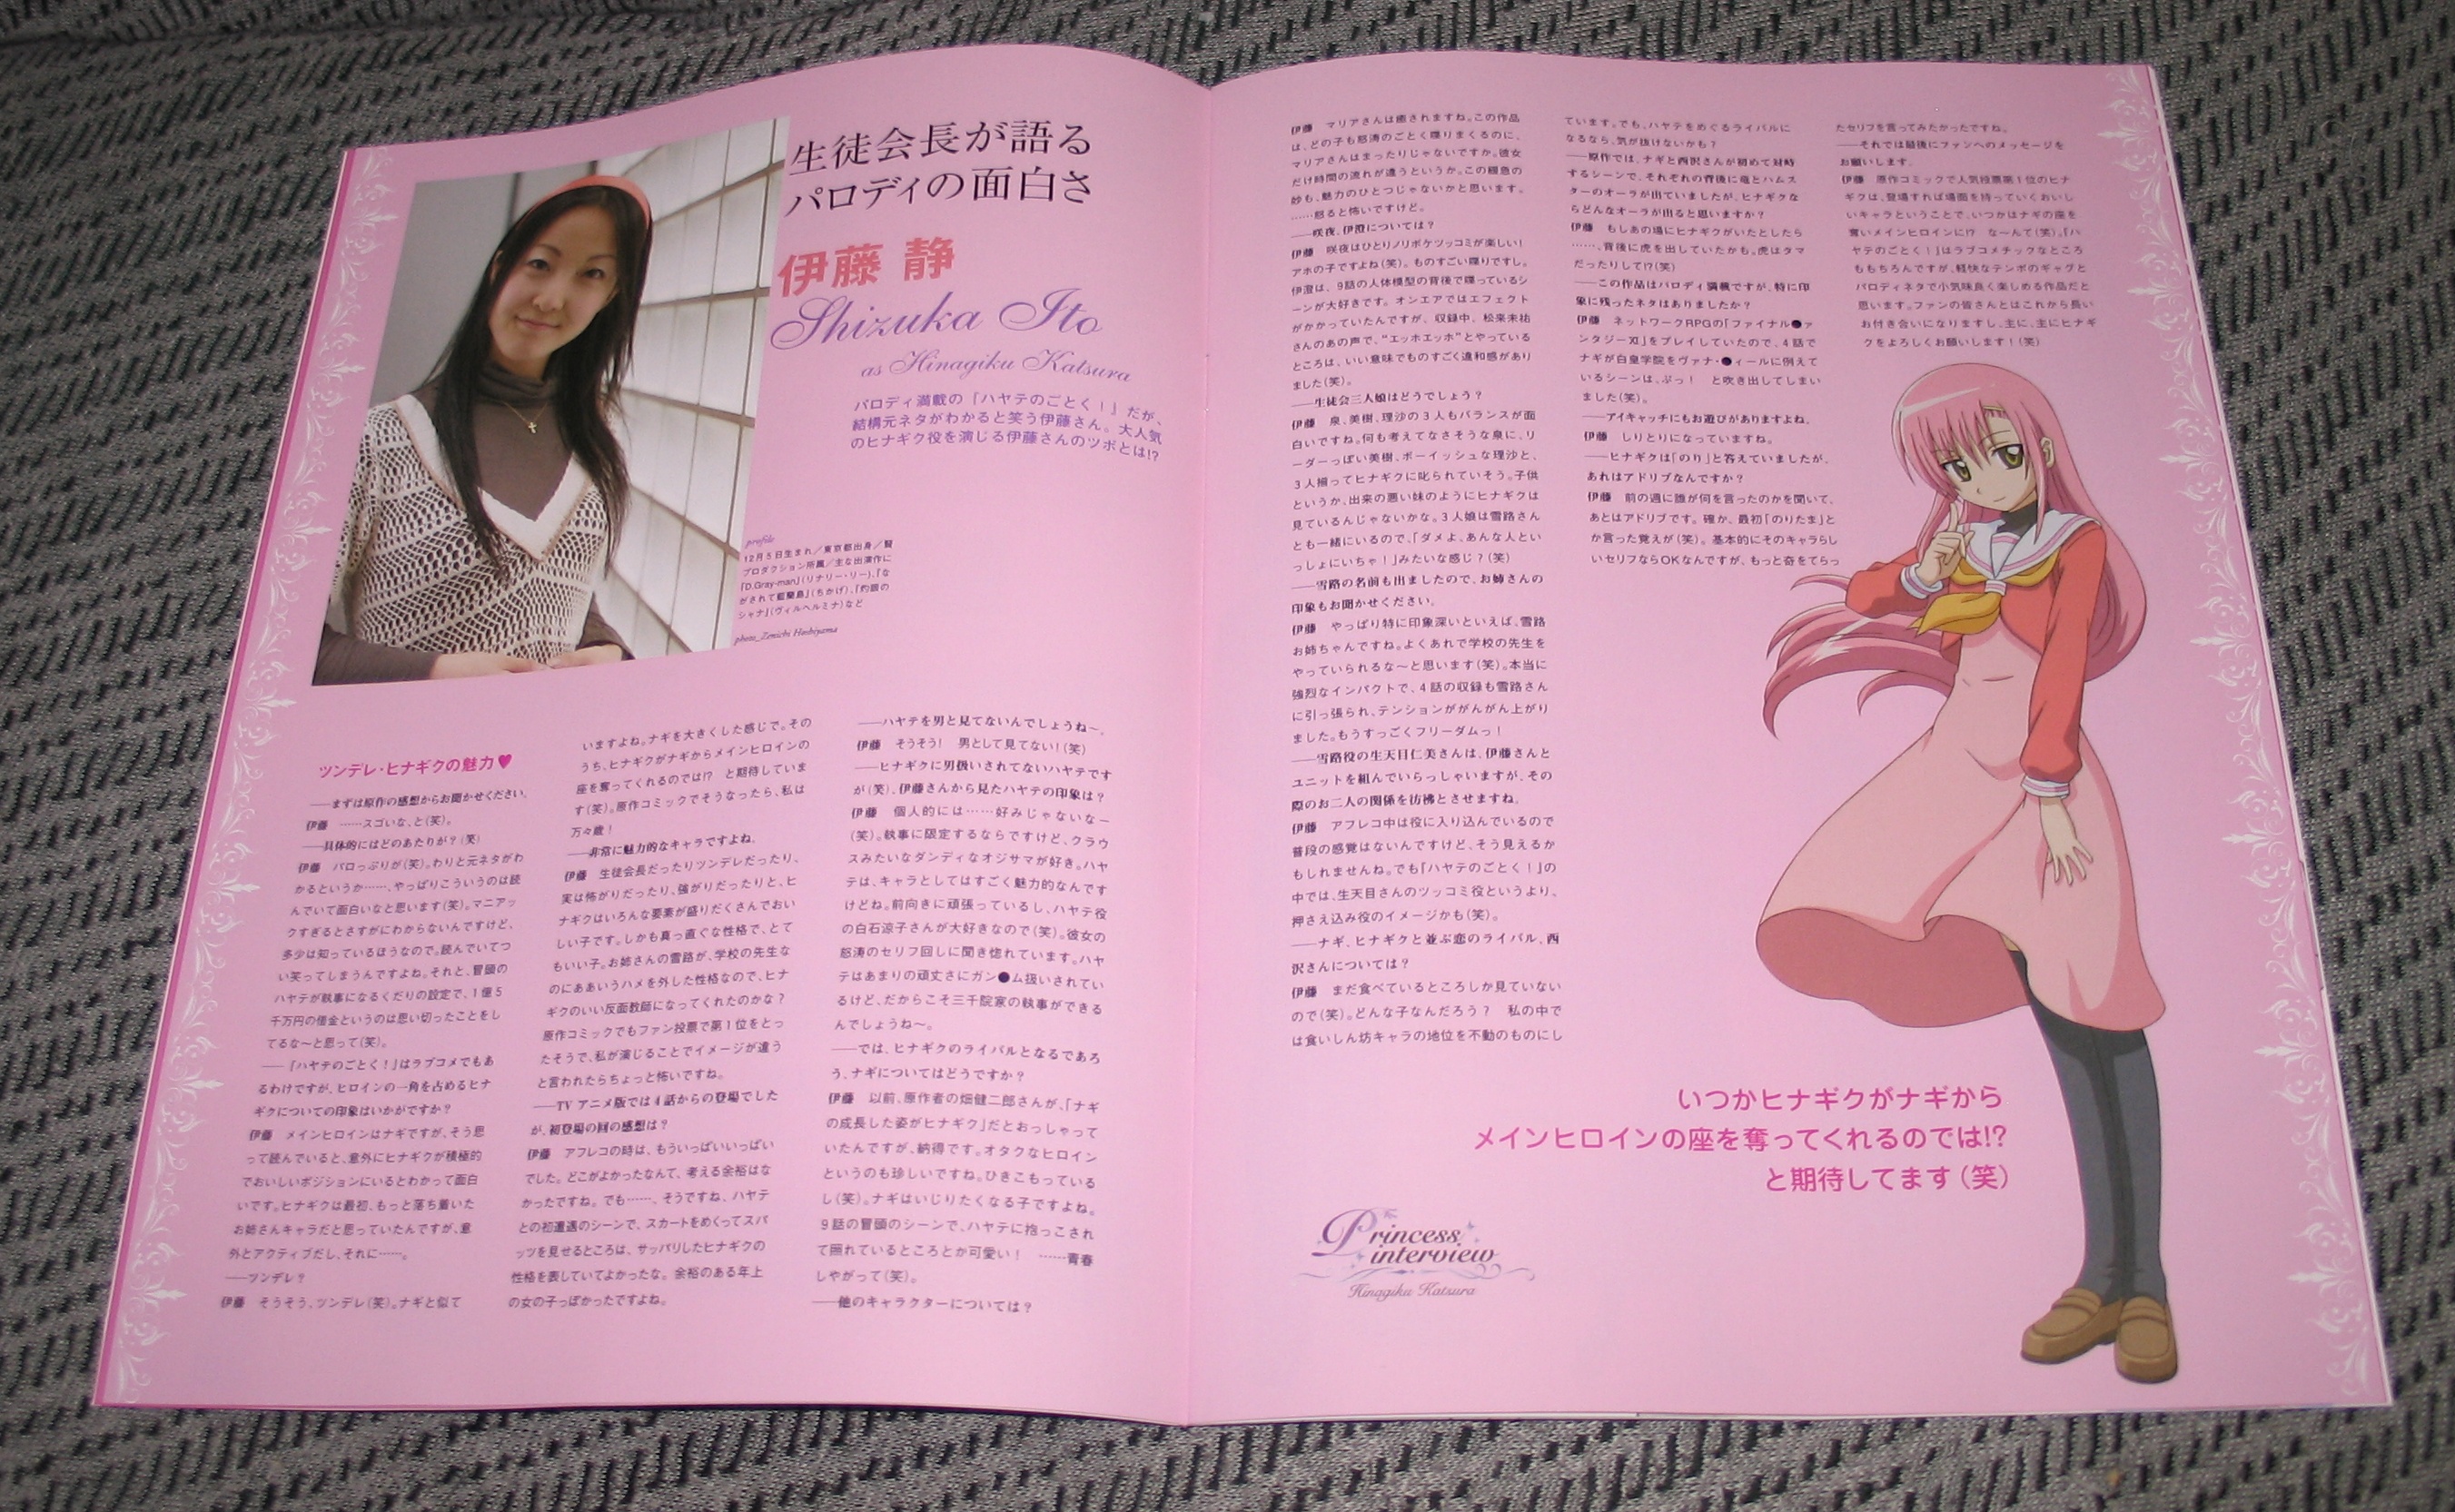 生徒会長が語る
パロディの面白さ
伊藤 静
Shizuka Ito
as Hinagiku Katsura
パロディ満載の『ハヤテのごとく！』だが、
結構元ネタがわかると笑う伊藤さん。大人気
のヒナギク役を演じる伊藤さんのツボとは!?
profile
12月5日生まれ／東京都出身／賢
プロダクション所属／主な出演作に
『D.Gray-man』(リナリー・リー)、『な
がされて藍蘭島』(ちかげ)、『灼眼の
シャナ』(ヴィルヘルミナ)など
photo_Zenichi Hoshiyama
ツンデレ・ヒナギクの魅力♥
――まずは原作の感想からお聞かせください。
伊藤　……スゴいな、と(笑)。
――具体的にはどのあたりが？(笑)
伊藤　パロっぷりが(笑)。わりと元ネタがわ
かるというか……、やっぱりこういうのは読
んでいて面白いなと思います(笑)。マニアッ
クすぎるとさすがにわからないんですけど、
多少は知っているほうなので。読んでいてつ
い笑ってしまうんですよね。それと、冒頭の
ハヤテが執事になるくだりの設定で、1億5
千万円の借金というのは思い切ったことをし
てるな〜と思って(笑)。
――『ハヤテのごとく！』はラブコメでもあ
るわけですが、ヒロインの一角を占めるヒナ
ギクについての印象はいかがですか？
伊藤　メインヒロインはナギですが、そう思
って読んでいると、意外にヒナギクが積極的
でおいしいポジションにいるとわかって面白
いです。ヒナギクは最初、もっと落ち着いた
お姉さんキャラだと思っていたんですが、意
外とアクティブだし、それに……。
――ツンデレ？
伊藤　そうそう、ツンデレ(笑)。ナギと似て
いますよね。ナギを大きくした感じで。その
うち、ヒナギクがナギからメインヒロインの
座を奪ってくれるのでは!?　と期待していま
す(笑)。原作コミックでそうなったら、私は
万々歳！
――非常に魅力的なキャラですよね。
伊藤　生徒会長だったりツンデレだったり、
実は怖がりだったり、強がりだったりと、ヒ
ナギクはいろんな要素が盛りだくさんでおい
しい子です。しかも真っ直ぐな性格で、とて
もいい子。お姉さんの雪路が、学校の先生な
のにああいうハメを外した性格なので、ヒナ
ギクのいい反面教師になってくれたのかな？
原作コミックでもファン投票で第1位をとっ
たそうで、私が演じることでイメージが違う
と言われたらちょっと怖いですね。
――TVアニメ版では4話からの登場でした
が、初登場の回の感想は？
伊藤　アフレコの時は、もういっぱいいっぱい
でした。どこがよかったなんて、考える余裕はな
かったですね。でも……、そうですね、ハヤテ
との初遭遇のシーンで、スカートをめくってスパ
ッツを見せるところは、サッパリしたヒナギクの
性格を表していてよかったな。余裕のある年上
の女の子っぽかったですよね。
――ハヤテを男と見てないんでしょうね〜。
伊藤　そうそう！　男として見てない！(笑)
――ヒナギクに男扱いされてないハヤテです
が(笑)、伊藤さんから見たハヤテの印象は？
伊藤　個人的には……好みじゃないなー
(笑)。執事に限定するならですけど、クラウ
スみたいなダンディなオジサマが好き。ハヤ
テは、キャラとしてはすごく魅力的なんです
けどね。前向きに頑張っているし、ハヤテ役
の白石涼子さんが大好きなので(笑)。彼女の
怒涛のセリフ回しに聞き惚れています。ハヤ
テはあまりの頑丈さにガン●ム扱いされてい
るけど、だからこそ三千院家の執事ができる
んでしょうね〜。
――では、ヒナギクのライバルとなるであろ
う、ナギについてはどうですか？
伊藤　以前、原作者の畑健二郎さんが、「ナギ
の成長した姿がヒナギク」だとおっしゃって
いたんですが、納得です。オタクなヒロイン
というのも珍しいですね。ひきこもっている
し(笑)。ナギはいじりたくなる子ですよね。
9話の冒頭のシーンで、ハヤテに抱っこされ
て照れているところとか可愛い！　……青春
しやがって(笑)。
――他のキャラクターについては？
伊藤　マリアさんは癒されますね。この作品
は、どの子も怒涛のごとく喋りまくるのに、
マリアさんはまったりじゃないですか。彼女
だけ時間の流れが違うというか。この緩急の
妙も、魅力のひとつじゃないかと思います。
……怒ると怖いですけど。
――咲夜、伊澄については？
伊藤　咲夜はひとりノリボケツッコミが楽しい！
アホの子ですよね(笑)。ものすごい喋りですし。
伊澄は、9話の人体模型の背後で喋っているシ
ーンが大好きです。オンエアではエフェクト
がかかっていたんですが、収録中、松来未祐
さんのあの声で、“エッホエッホ”とやっている
ところは、いい意味でものすごく違和感があり
ました(笑)。
――生徒会三人娘はどうでしょう？
伊藤　泉、美樹、理沙の3人もバランスが面
白いですね。何も考えてなさそうな泉に、リ
ーダーっぽい美樹、ボーイッシュな理沙と、
3人揃ってヒナギクに叱られていそう。子供
というか、出来の悪い妹のようにヒナギクは
見ているんじゃないかな。3人娘は雪路さん
とも一緒にいるので、「ダメよ、あんな人とい
っしょにいちゃ！」みたいな感じ？(笑)
――雪路の名前も出ましたので、お姉さんの
印象もお聞かせください。
伊藤　やっぱり特に印象深いといえば、雪路
お姉ちゃんですね。よくあれで学校の先生を
やっていられるな〜と思います(笑)。本当に
強烈なインパクトで、4話の収録も雪路さん
に引っ張られ、テンションががんがん上がり
ました。もうすっごくフリーダムっ！
――雪路役の生天目仁美さんは、伊藤さんと
ユニットを組んでいらっしゃいますが、その
際のお二人の関係を彷彿とさせますね。
伊藤　アフレコ中は役に入り込んでいるので
普段の感覚はないんですけど、そう見えるか
もしれませんね。でも『ハヤテのごとく！』の
中では、生天目さんのツッコミ役というより、
押さえ込み役のイメージかも(笑)。
――ナギ、ヒナギクと並ぶ恋のライバル、西
沢さんについては？
伊藤　まだ食べているところしか見ていない
ので(笑)。どんな子なんだろう？　私の中で
は食いしん坊キャラの地位を不動のものにし
ています。でも、ハヤテをめぐるライバルに
なるなら、気が抜けないかも？
――原作では、ナギと西沢さんが初めて対峙
するシーンで、それぞれの背後に竜とハムス
ターのオーラが出ていましたが、ヒナギクな
らどんなオーラが出ると思いますか？
伊藤　もしあの場にヒナギクがいたとしたら
……、背後に虎を出していたかも。虎はタマ
だったりして!?(笑)
――この作品はパロディ満載ですが、特に印
象に残ったネタはありましたか？
伊藤　ネットワークRPGの『ファイナル●ァ
ンタジーXI』をプレイしていたので、4話で
ナギが白皇学院をヴァナ・●ィールに例えて
いるシーンは、ぷっ！　と吹き出してしまい
ました(笑)。
――アイキャッチにもお遊びがありますよね。
伊藤　しりとりになっていますね。
――ヒナギクは「のり」と答えていましたが、
あれはアドリブなんですか？
伊藤　前の週に誰が何を言ったのかを聞いて、
あとはアドリブです。確か、最初「のりたま」と
か言った覚えが(笑)。基本的にそのキャラらし
いセリフならOKなんですが、もっと奇をてらっ
たセリフを言ってみたかったですね。
――それでは最後にファンへのメッセージを
お願いします。
伊藤　原作コミックで人気投票第1位のヒナ
ギクは、登場すれば場面を持っていくおいし
いキャラということで、いつかはナギの座を
奪いメインヒロインに!?　な〜んて(笑)。『ハ
ヤテのごとく！』はラブコメチックなところ
ももちろんですが、軽快なテンポのギャグと
パロディネタで小気味良く楽しめる作品だと
思います。ファンの皆さんとはこれから長い
お付き合いになりますし、主に、主にヒナギ
クをよろしくお願いします！(笑)
いつかヒナギクがナギから
メインヒロインの座を奪ってくれるのでは!?
と期待してます(笑)
Princess
interview
Hinagiku Katsura